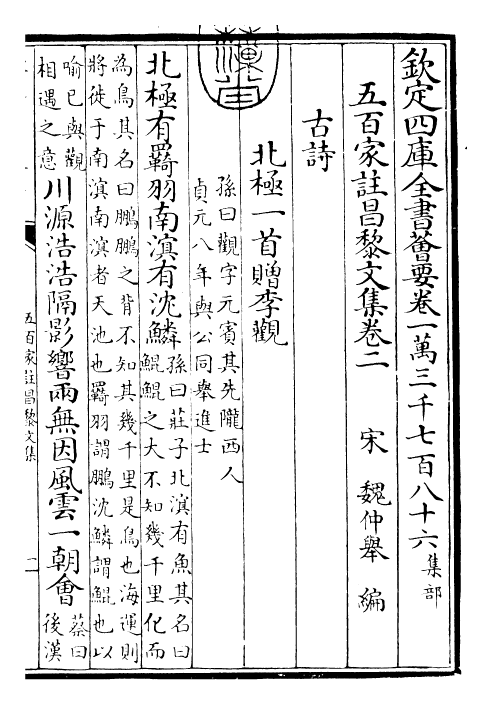 欽定四庫全書薈要卷一萬三千七百八十六 集部
五百家註昌黎文集卷二 宋 魏仲舉 編
古詩
北極一首贈李觀
孫曰觀字元賓其先隴西人
貞元八年與公同舉進士
北極有羇羽南溟有沈鱗
孫曰莊子北溟有魚其名曰
鯤鯤之大不知幾千里化而
為鳥其名曰鵬鵬之背不知其幾千里是鳥也海運則
將徙于南溟南溟者天池也羇羽謂鵬沈鱗謂鯤也以
喻已與觀
相遇之意
川源浩浩隔影響兩無因風雲一朝會
蔡曰
後漢
五百家註昌黎文集
一